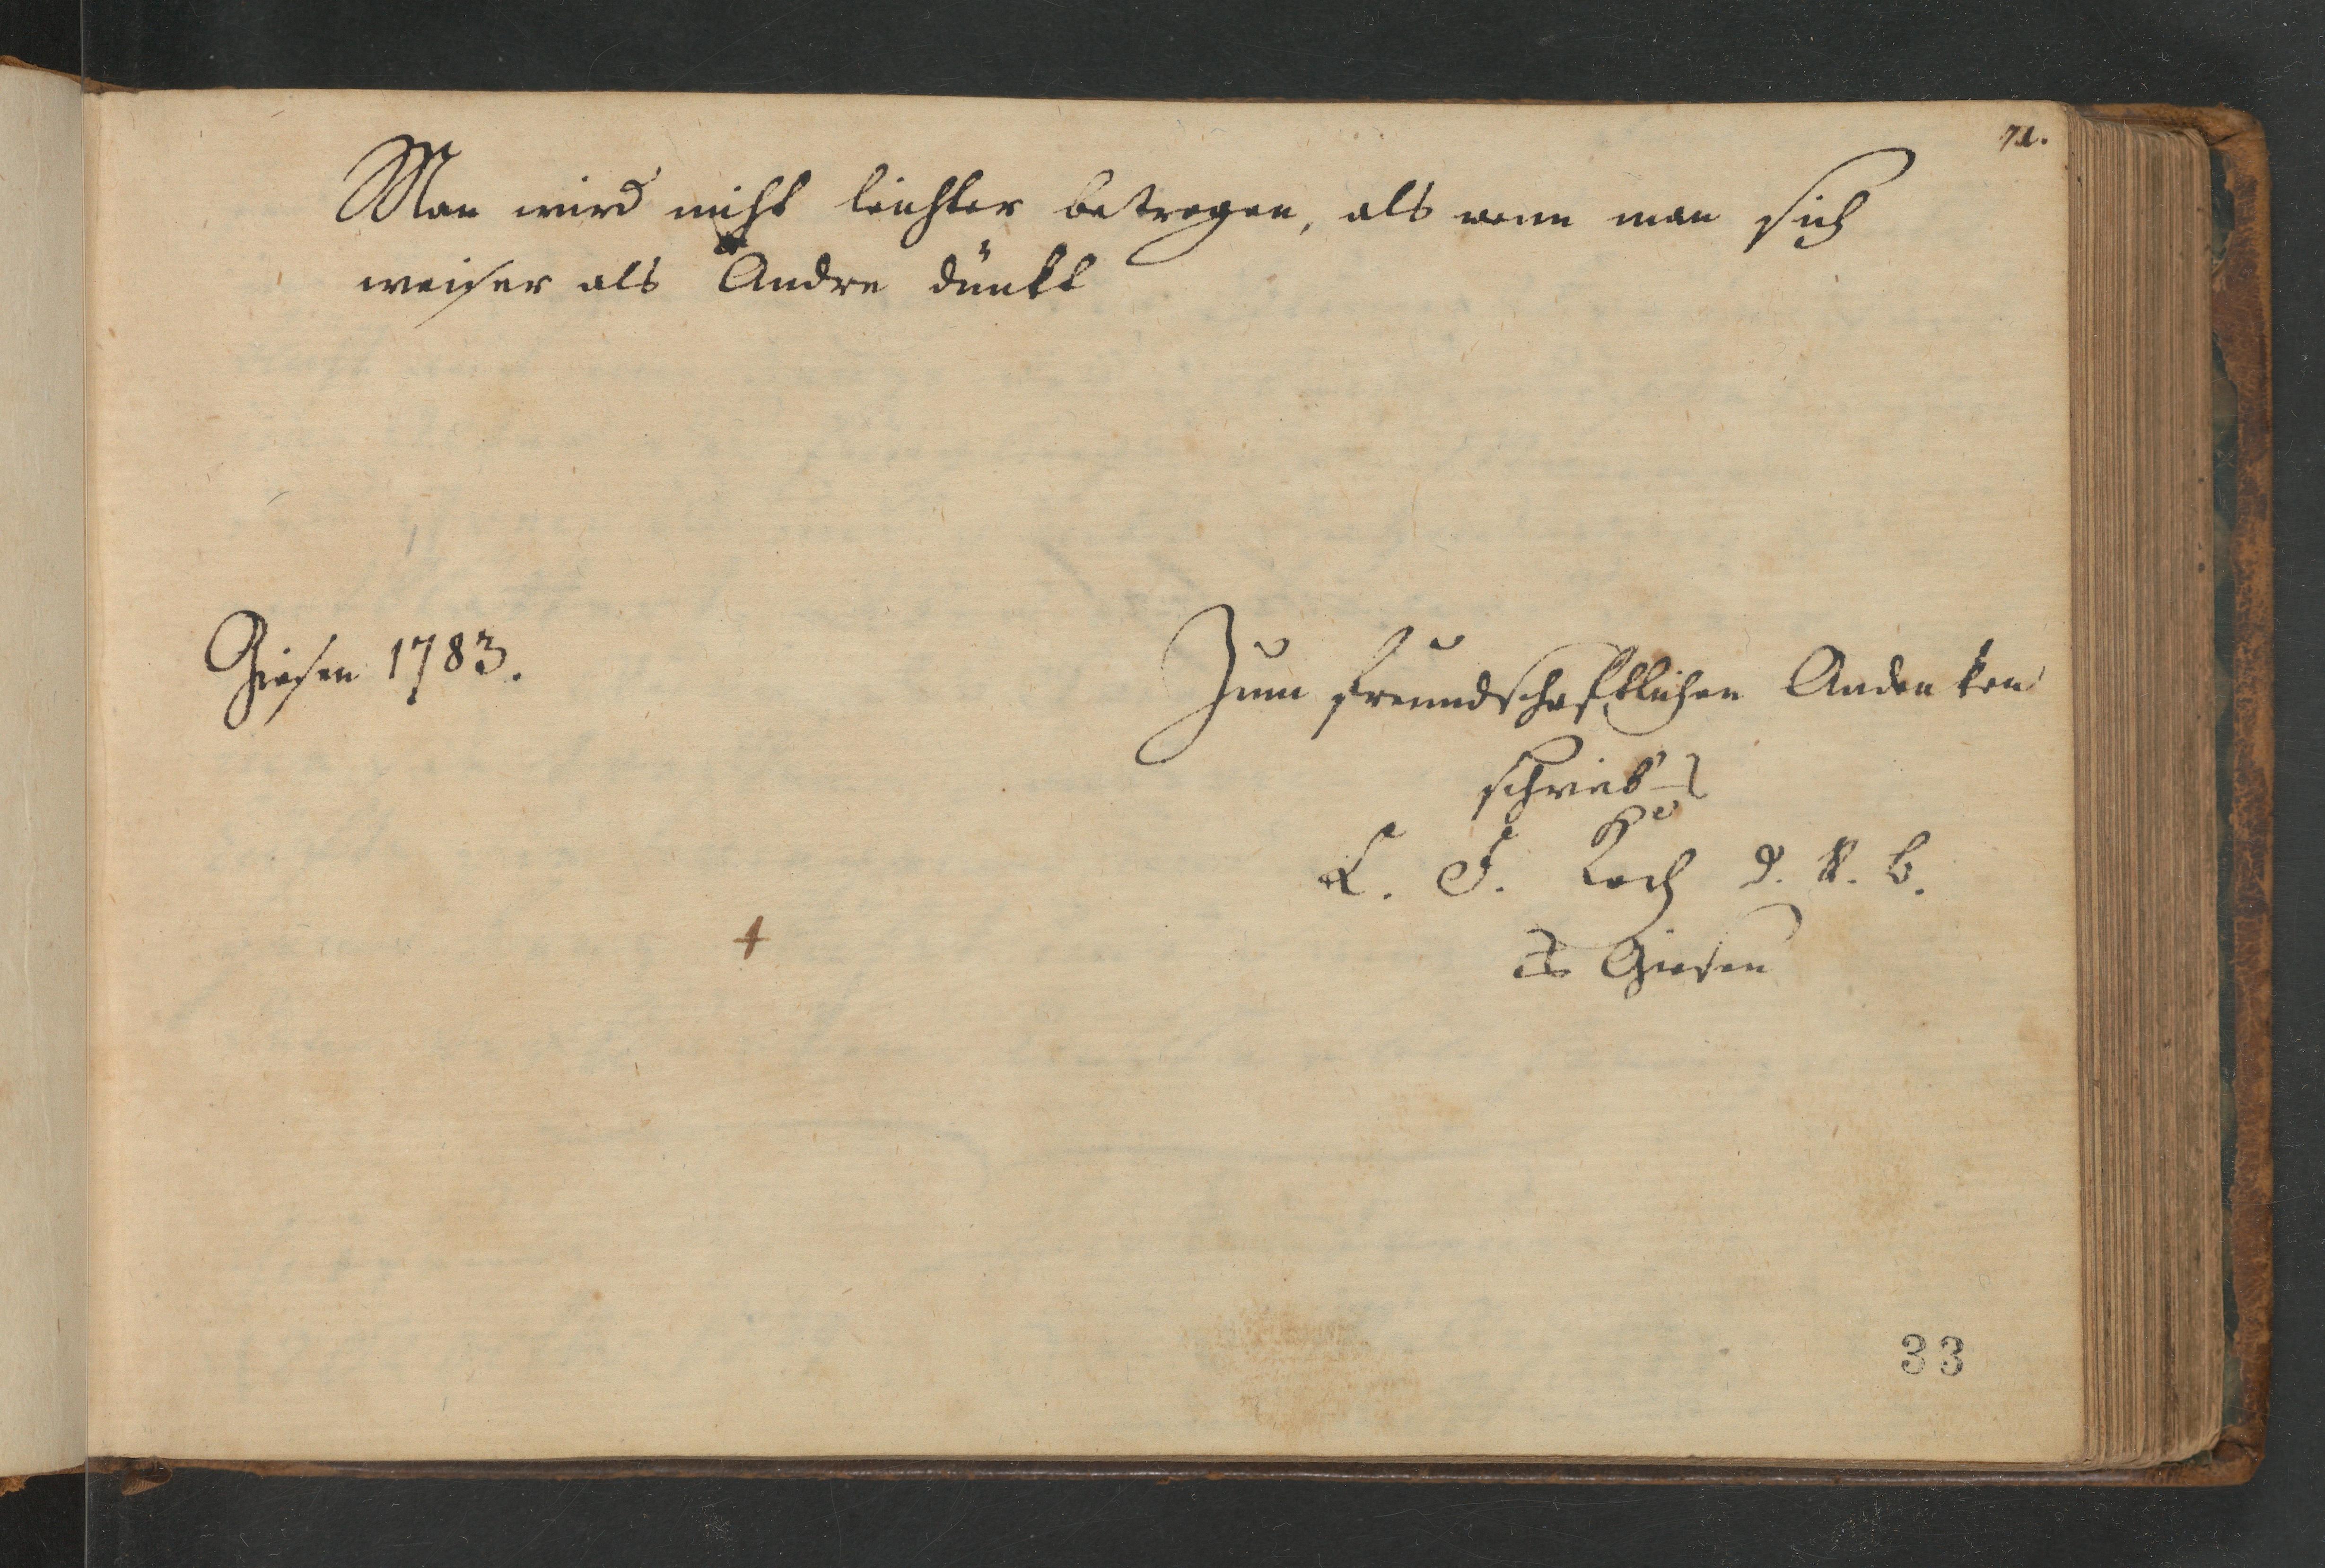 71.
Man wird nicht leichter betrogen, als wenn man sich
weiser als Andre dünkt
Giesen 1783.
Zum freundschaftlichen Andenken
schrieb
L. F. Koch d. R. b.
Giesen
33